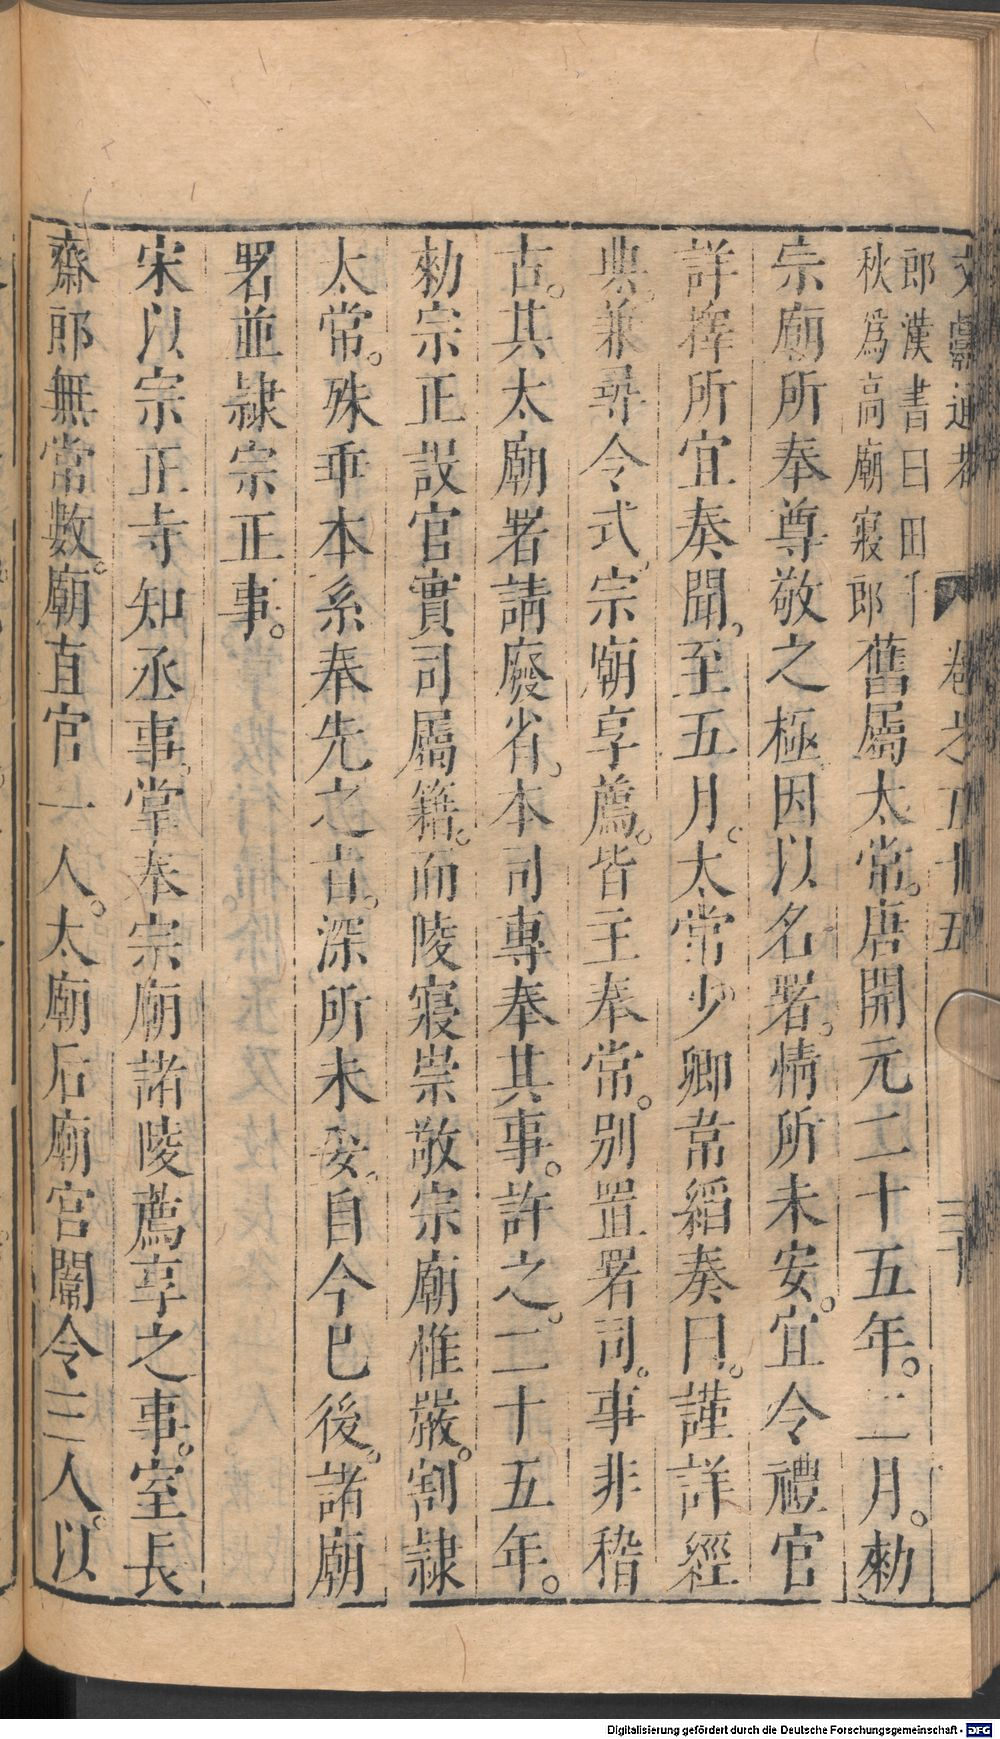 文獻通考 卷之五十五 三十
郎漢書曰田千
秋爲高廟寢郎
舊屬太常。唐開元二十五年。二月。勑
宗廟所奉尊敬之極因以名署。情所未安。宜令禮官
詳擇所宜奏聞、至五月。太常少卿韋縚奏曰。謹詳經
典。兼尋令式、宗廟享薦。皆主奉常。別置署司。事非稽
古。其太廟署請廢省、本司專奉其事。許之。二十五年。
勑宗正設官實司屬籍。而陵寢崇敬宗廟惟嚴。割隷
太常。殊乖本系奉先之旨。深所未安、自今已後。諸廟
署並隷宗正事。
宋以宗正寺知丞事、掌奉宗廟諸陵薦享之事。室長
齋郎無常數。廟直官一人。太廟后廟宫闈令三人。以
Digitalisierung gefördert durch die Deutsche Forschungsgemeinschaft - DFG